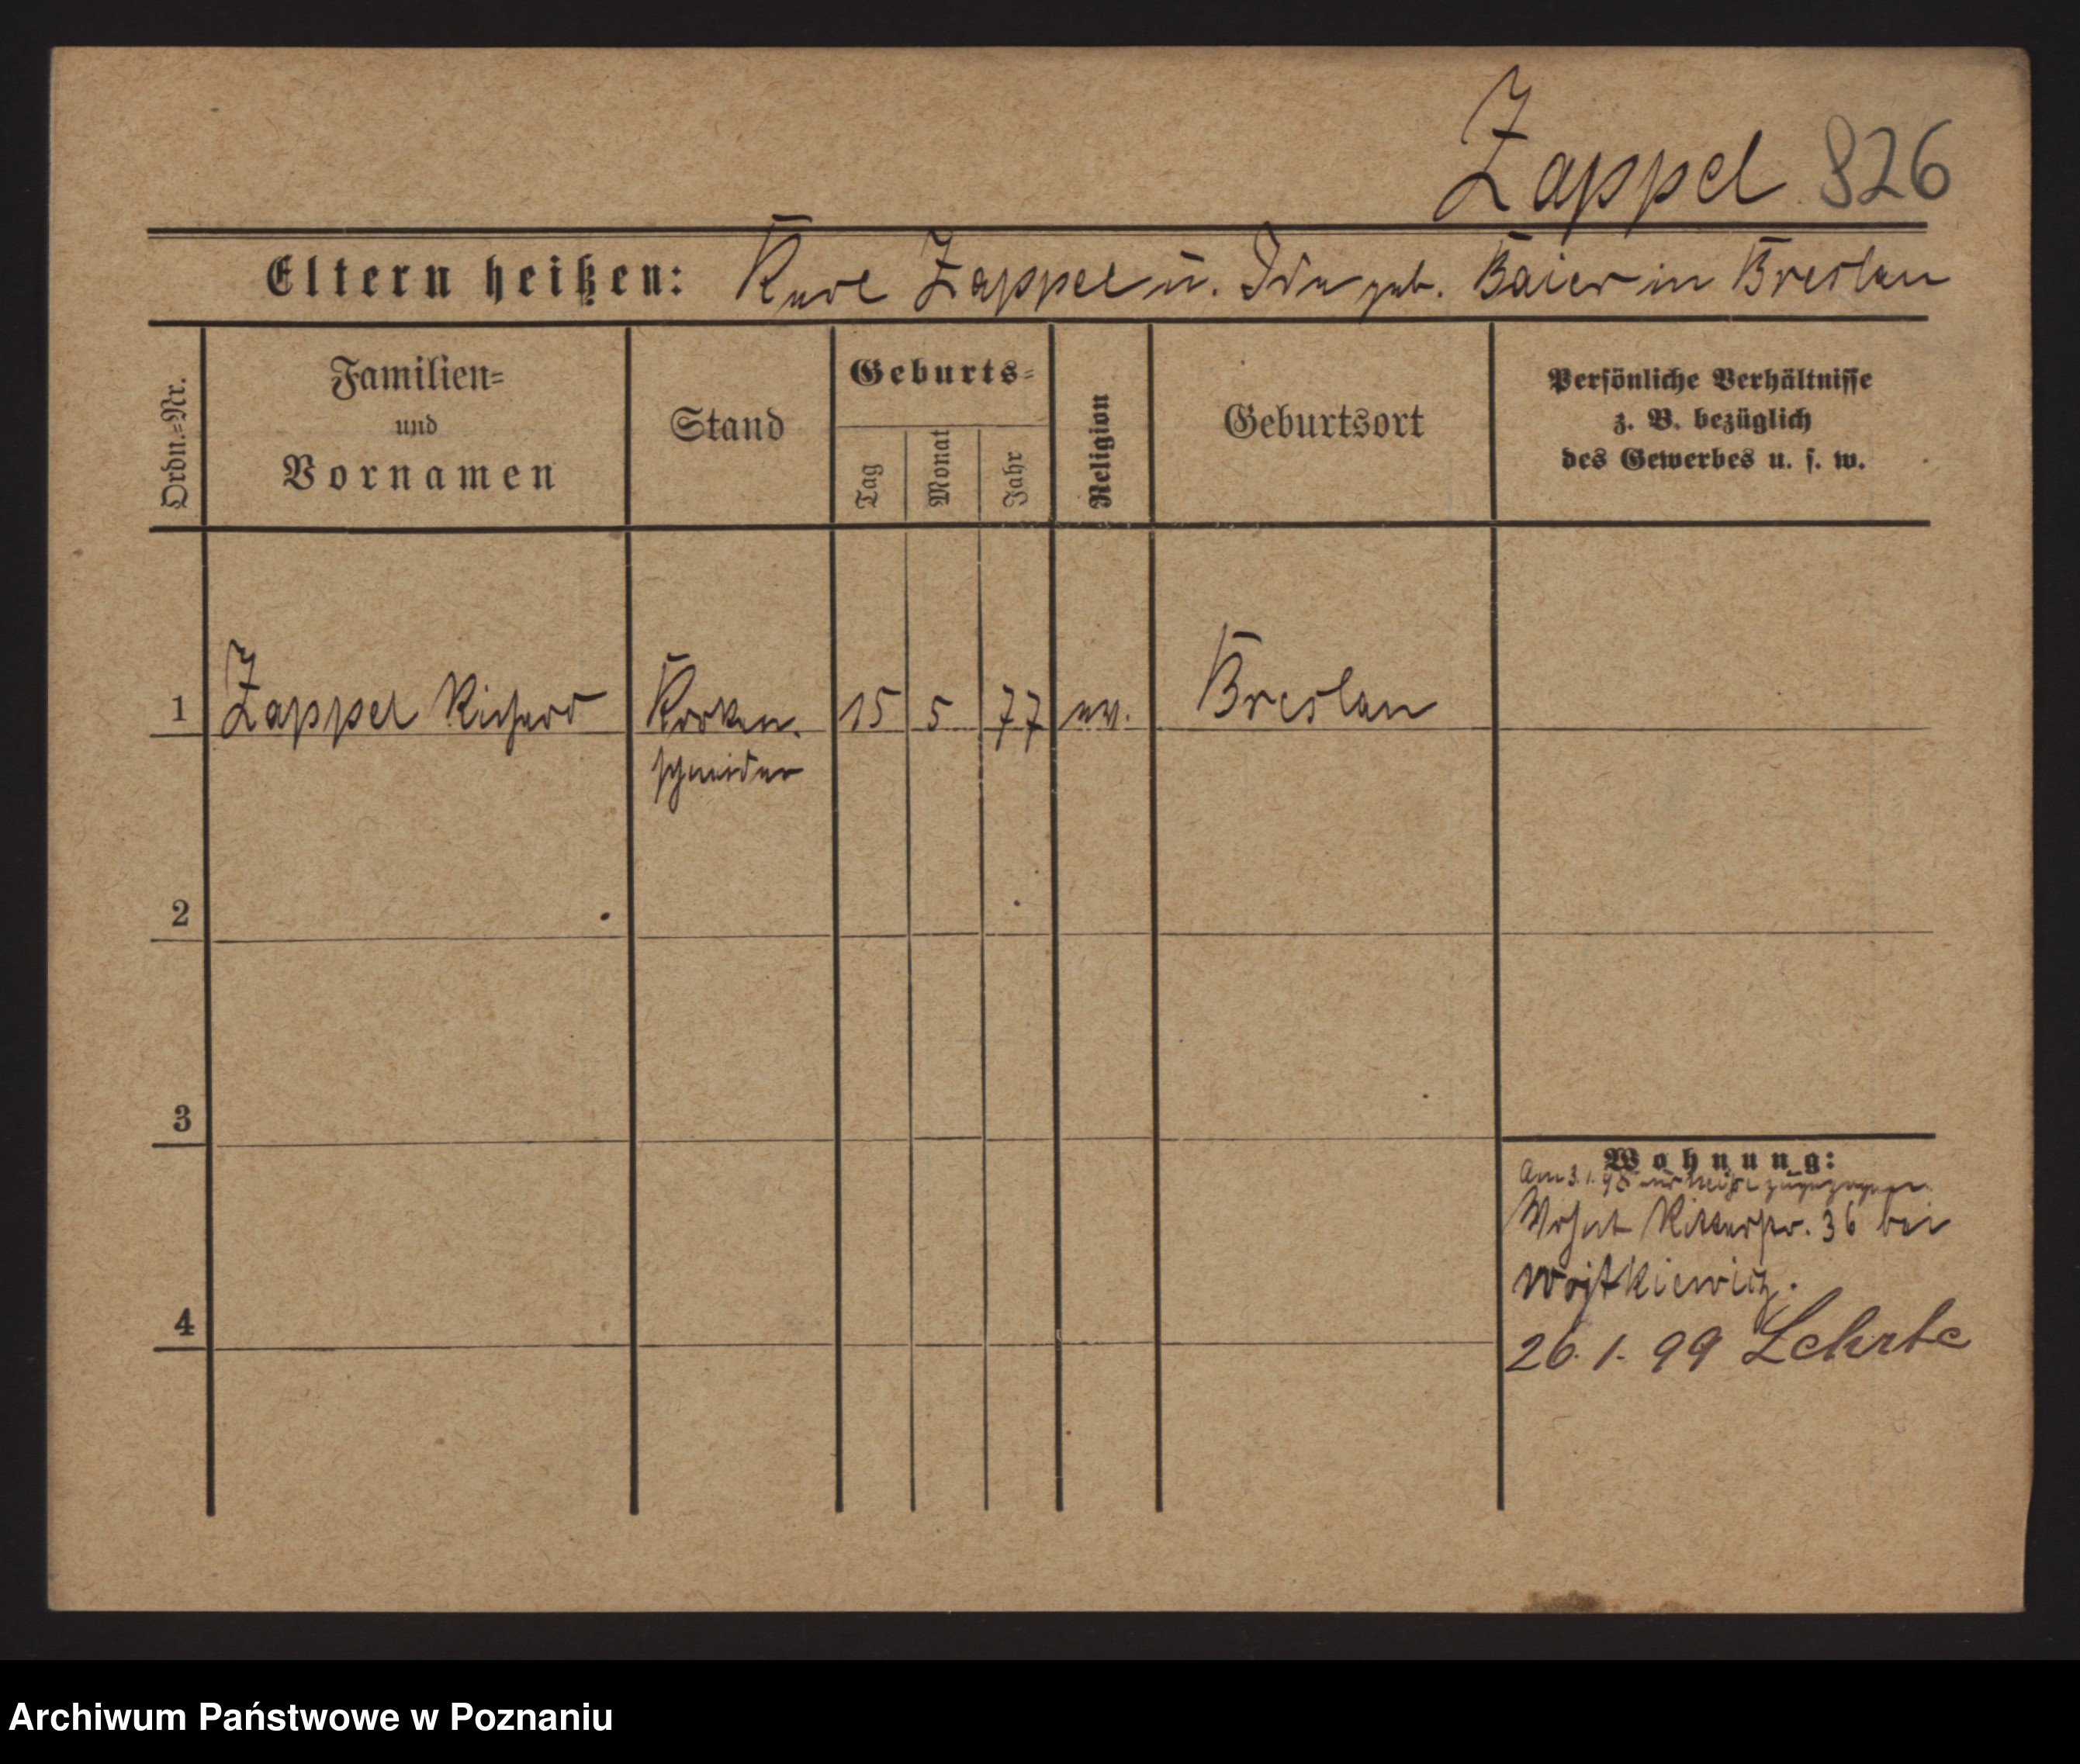 Zappel 826
Eltern heißen: Karl Zappel u. Ida geb. Baier in Breslau
Ordn.=Nr.
Familien=
und
Vornamen
Stand
Geburts=
Tag
Monat
Jahr
Religion
Geburtsort
Persönliche Verhältnisse
z. B. bezüglich
des Gewerbes u. s. w.
1 Zappel Richard Korken- 15 5 77 ev. Breslau
schneider
2
3
Wohnung:
Am 3.1.98 zugezogen
Wohnt Ritterstr. 36 bei
Wojtkiewicz.
4
26. 1. 99 Lehrte
Archiwum Państwowe w Poznaniu